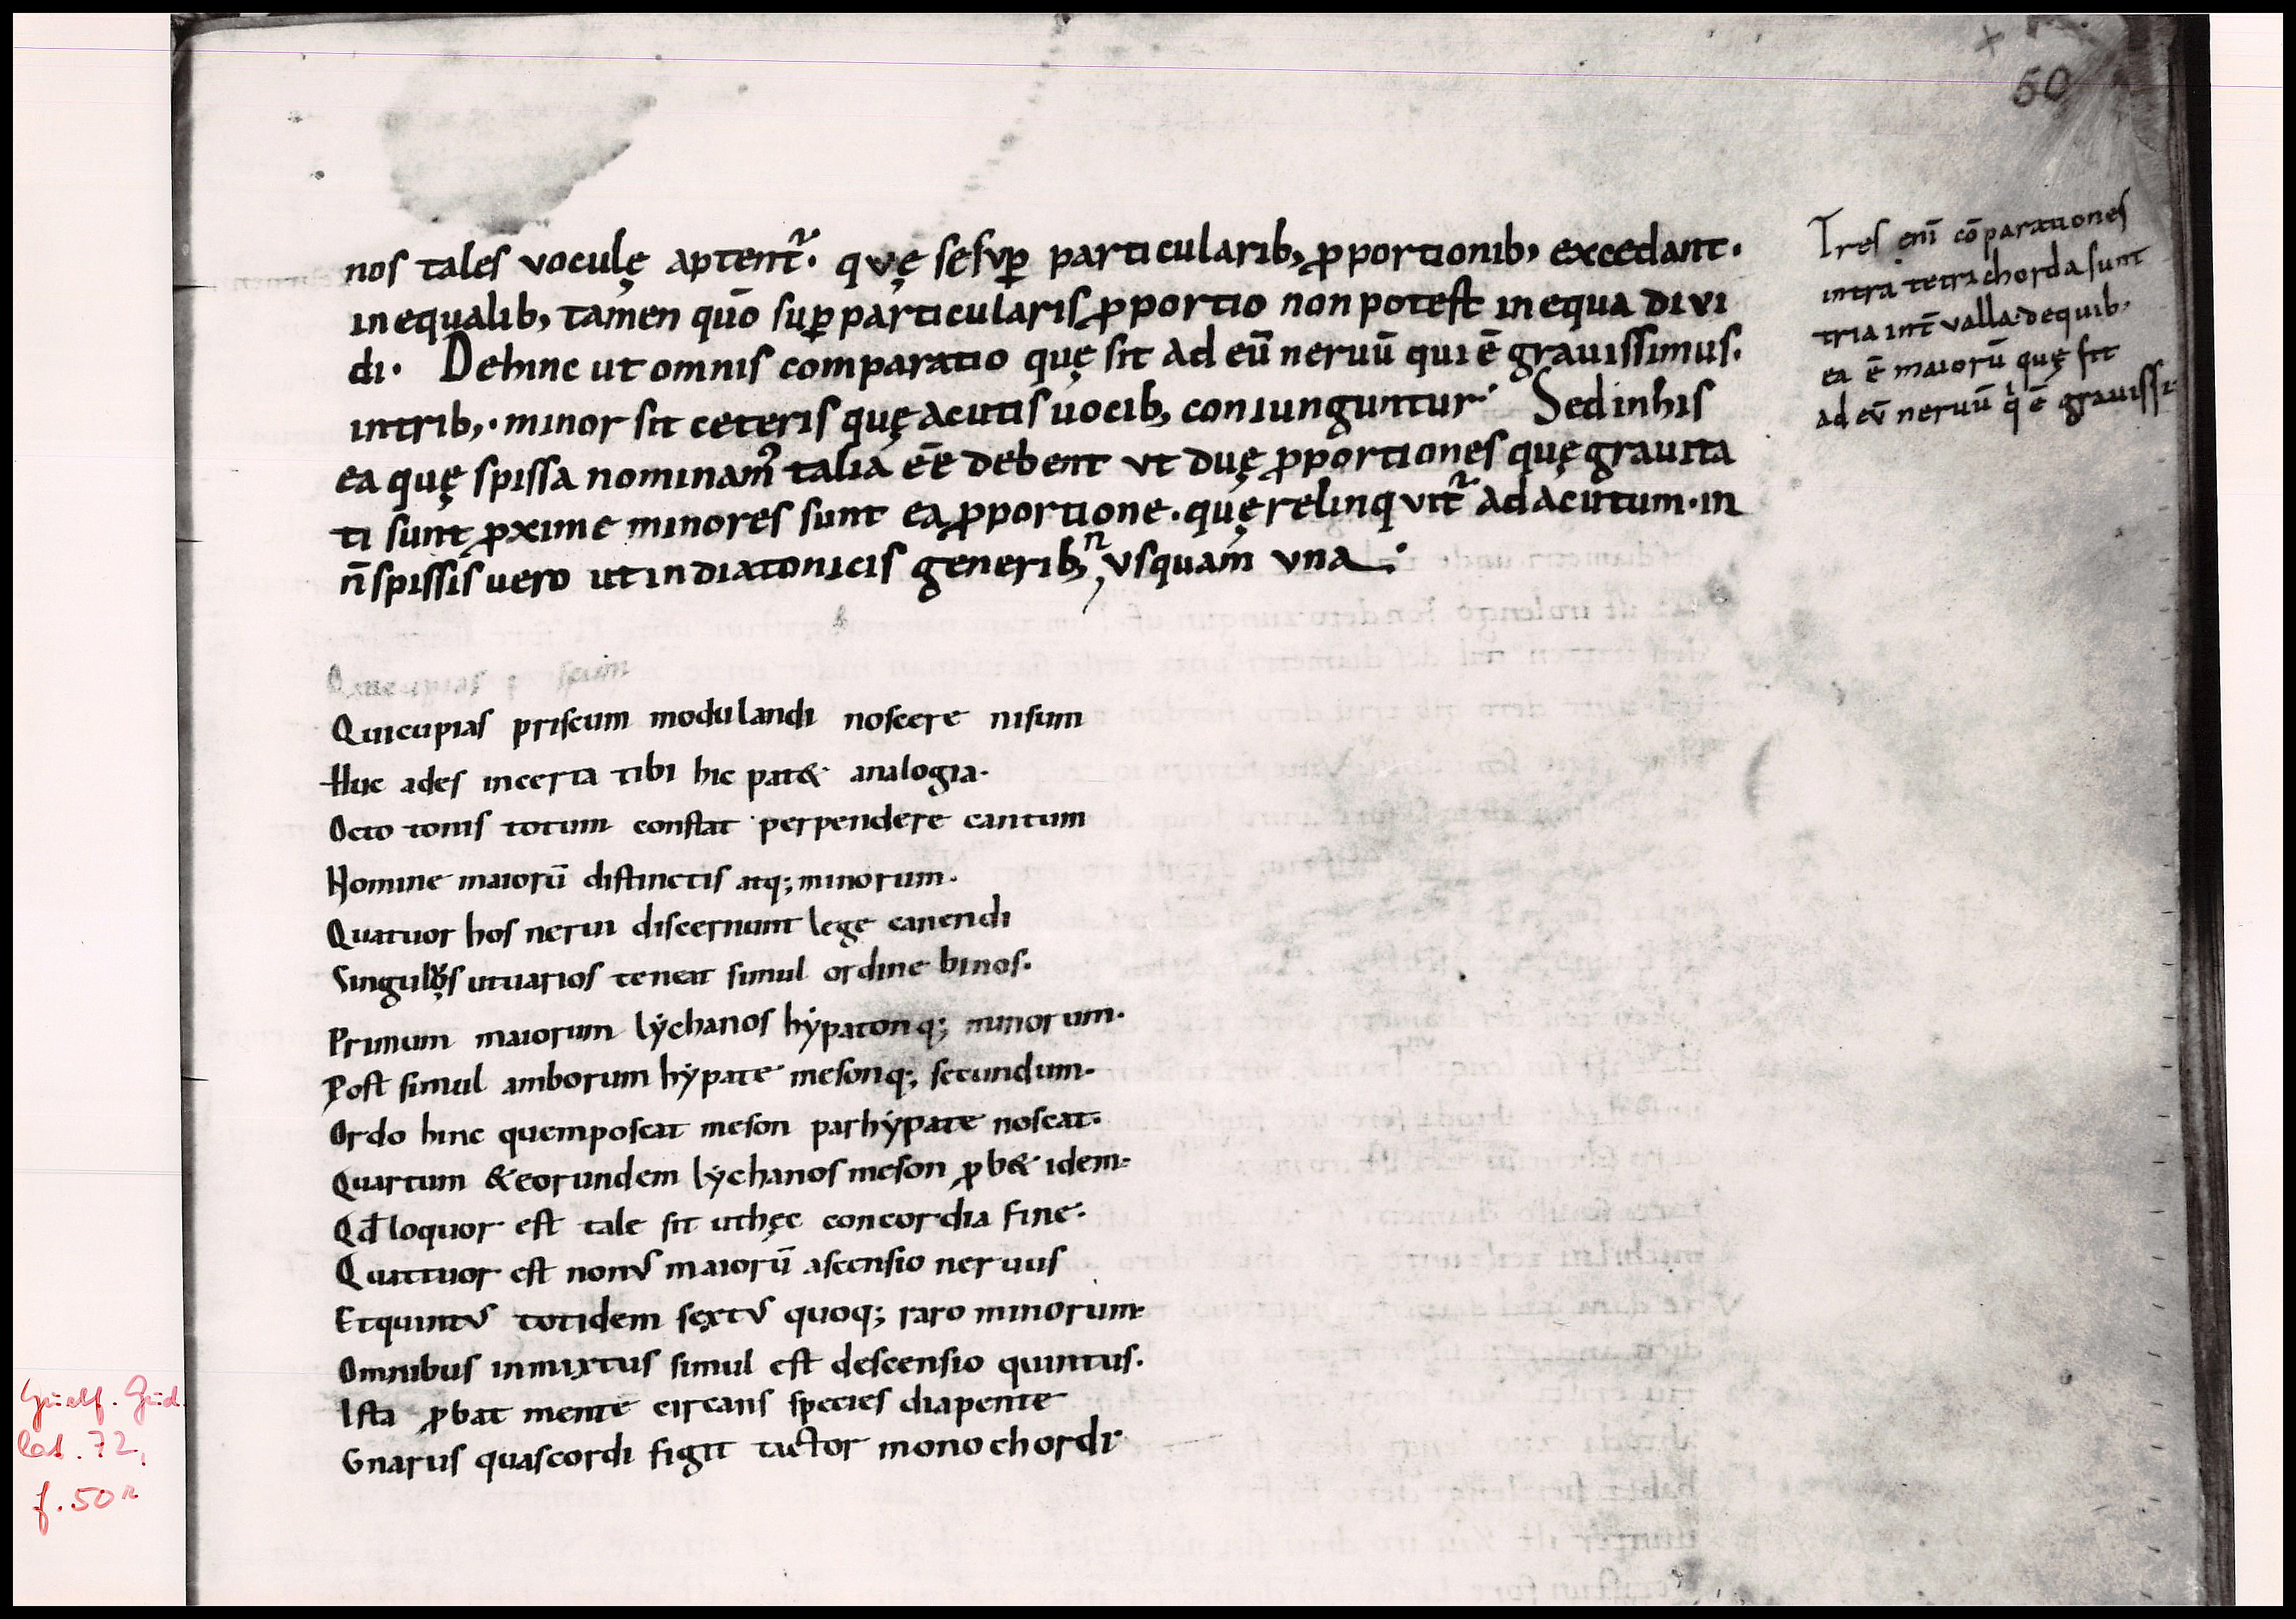 50
nos tales voculę aptent᷑. qvę sesup̲ particularib; ꝓportionib; excedant.
inequalib; tamen quō sup̲particularis ꝓportio non potest in equa divi
di. Dehinc ut omnis comparatio quę sit ad eū neruū qui ē grauissimus.
intrib;. minor sit ceteris quę acutis uocib; coniunguntur. Sed in his
ea quę spissa nominam᷑ talia ēē debent vt duę ꝓportiones quę grauita
ti sunt ꝓxime minores sunt ea ꝓportione. quę relinqvit᷑ ad acutum. in
n̄ spissis uero ut in diatonicis generib; nvsquam vna.
Tres eni̅ cōparationes
intra tetrachorda sunt
tria int̄valla. de quib.
ea ē maiorū quę sit
ad eū neruū qͥ ē grauissi
Qui cupias priscum modulandi noscere nisum
Huc ades incerta tibi hic pat& analogia.
Octo tonis totum constat perpendere cantum
Nomine maiorū distinctis atq; minorum.
Quatuor hos nerui discernunt lege canendi
utuarios teneat simul ordine binos.
Primum maiorum lẏchanos hẏpaton q; minorum.
Post simul amborum hẏpate mesonq; secundum.
Ordo hinc quem poscat meson parhẏpate noscat.
Quartum & eorundem lẏchanos meson ꝓb& idem.
Qđ loquor est tale sit ut hęc concordia fine.
Quattuor est nonus maiorū ascensio neruus
Et quintus totidem sextus quoq; raro minorum
Omnibus inmixtus simul est descensio quintus.
Ista ꝓbat mente circans species diapente
Gnarus quas cordi figit tactor monochordi.
Guelf. Gud.
lat. 72,
f. 50r